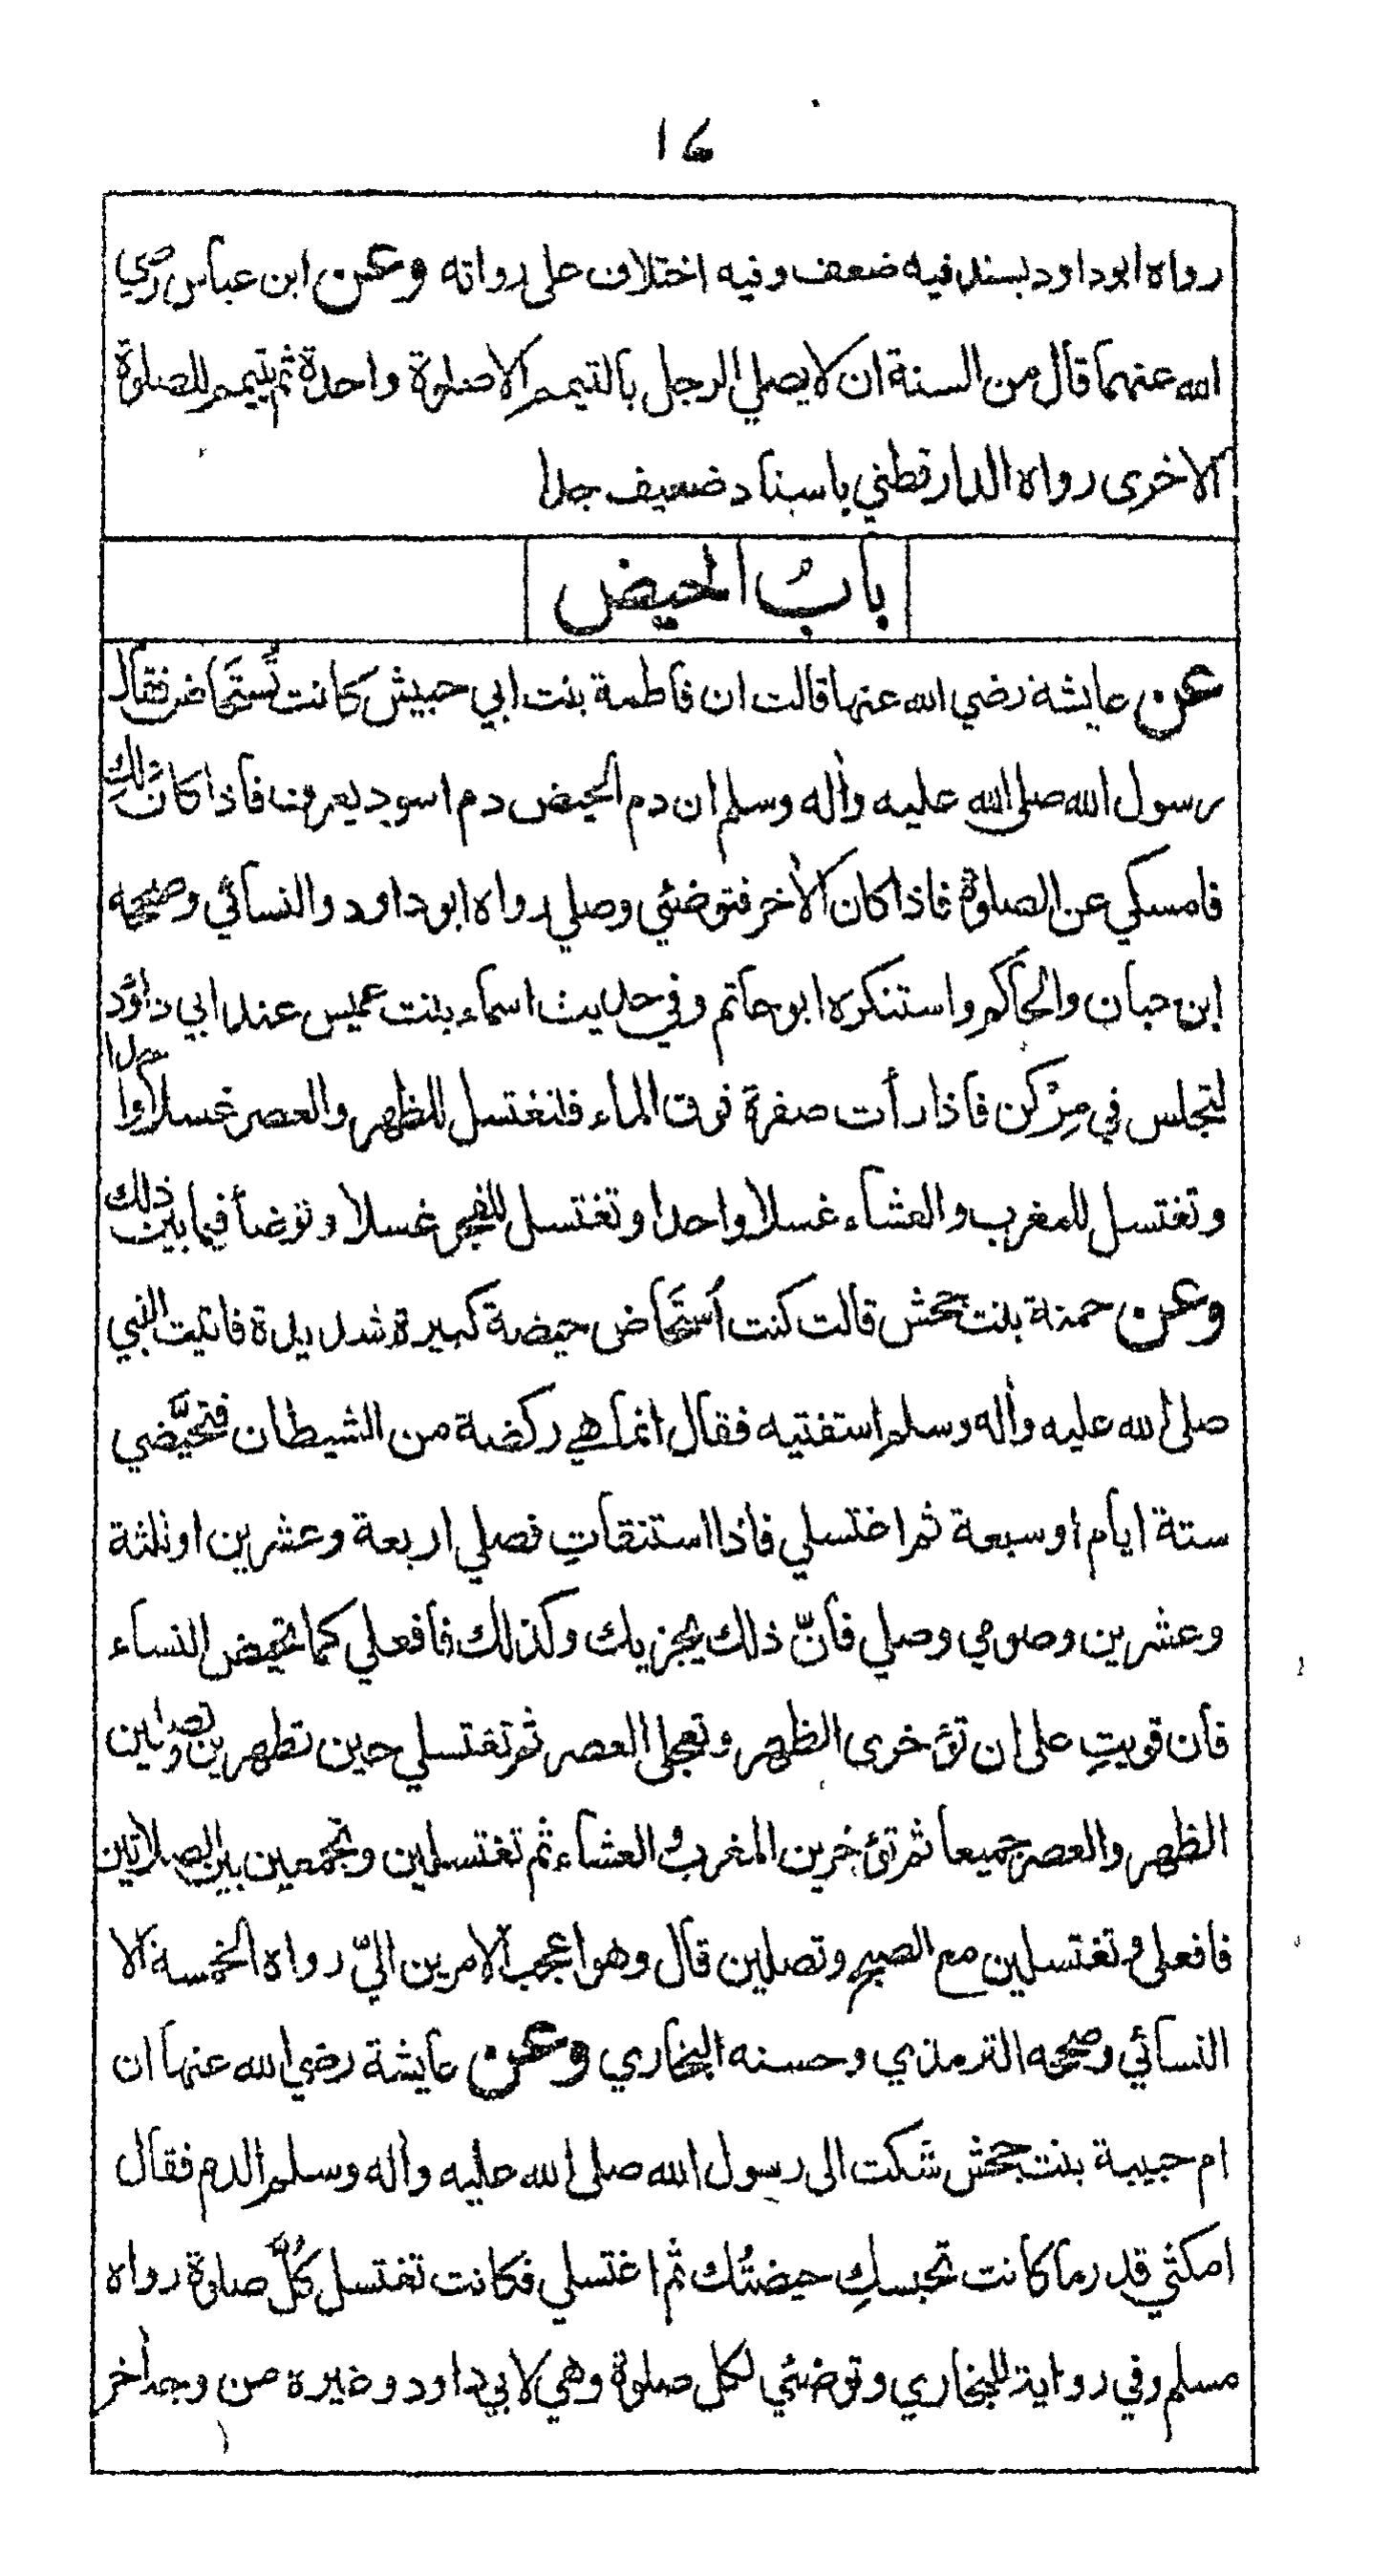 ١٦
رواه ابوداود بسند فيه ضعف وفيه اختلاف على رواته وعن ابن عباس رضي
الله عنهما قال من السنة ان لا يصلي الرجل بالتيمم الا صلوة واحدة ثم يتيمم للصلوة
الاخرى رواه الدارقطني باسناد ضعيف جدا
بابُ الحيض
عن عايشة رضي الله عنها قالت ان فاطمة بنت ابي حبيش كانت تُستَحاض فقال
رسول الله صلى الله عليه وأله وسلم ان دم الحيض دم اسود يعرف فاذا كان ذلكِ
فامسكي عن الصلوة فاذا كان الأخر فتوضئي وصلي رواه ابوداود والنسائي وصححه
ابن حبان والحاكم واستنكره ابوحاتم وفي حديث اسماء بنت عميس عند ابي داؤد
لتجلس في مِرْكن فاذا رأت صفرة فوق الماء فلتغتسل للظهر والعصر غسلا واحدا
وتغتسل للمغرب والعشاء غسلا واحدا وتغتسل للفجر غسلا وتوضأ فيما بين ذلك
وعن حمنة بنت جحش قالت كنت اُستَحاض حيضة كبيرة شديدة فاتيت النبي
صلى الله عليه وأله وسلم استفتيه فقال انما هي ركضة من الشيطان فتحيَّضي
ستة ايام اوسبعة ثم اغتسلي فاذا استنقاتِ فصلي اربعة وعشرين اوثلثة
وعشرين وصومي وصلي فانّ ذلك يجزيك وكذلك فافعلي كما تحيض النساء
فان قويتِ على ان تؤخرى الظهر وتعجلى العصر ثم تغتسلي حين تطهرين وتصلين
الظهر والعصر جميعا ثم تؤخرين المغرب والعشاء ثم تغتسلين وتجمعين بين الصلاتين
فافعلى وتغتسلين مع الصبح وتصلين قال وهو اعجب الامرين اليّ رواه الخمسة الا
النسائي وصححه الترمذي وحسنه البخاري وعن عايشة رضي الله عنها ان
ام حبيبة بنت جحش شكت الى رسول الله صلى الله عليه وأله وسلم الدم فقال
امكثي قدر ما كانت تحبسكِ حيضتُك ثم اغتسلي فكانت تغتسل كُلَّ صلوة رواه
مسلم وفي رواية للبخاري وتوضئي لكل صلوة وهي لابي داود وغيره من وجه أخر